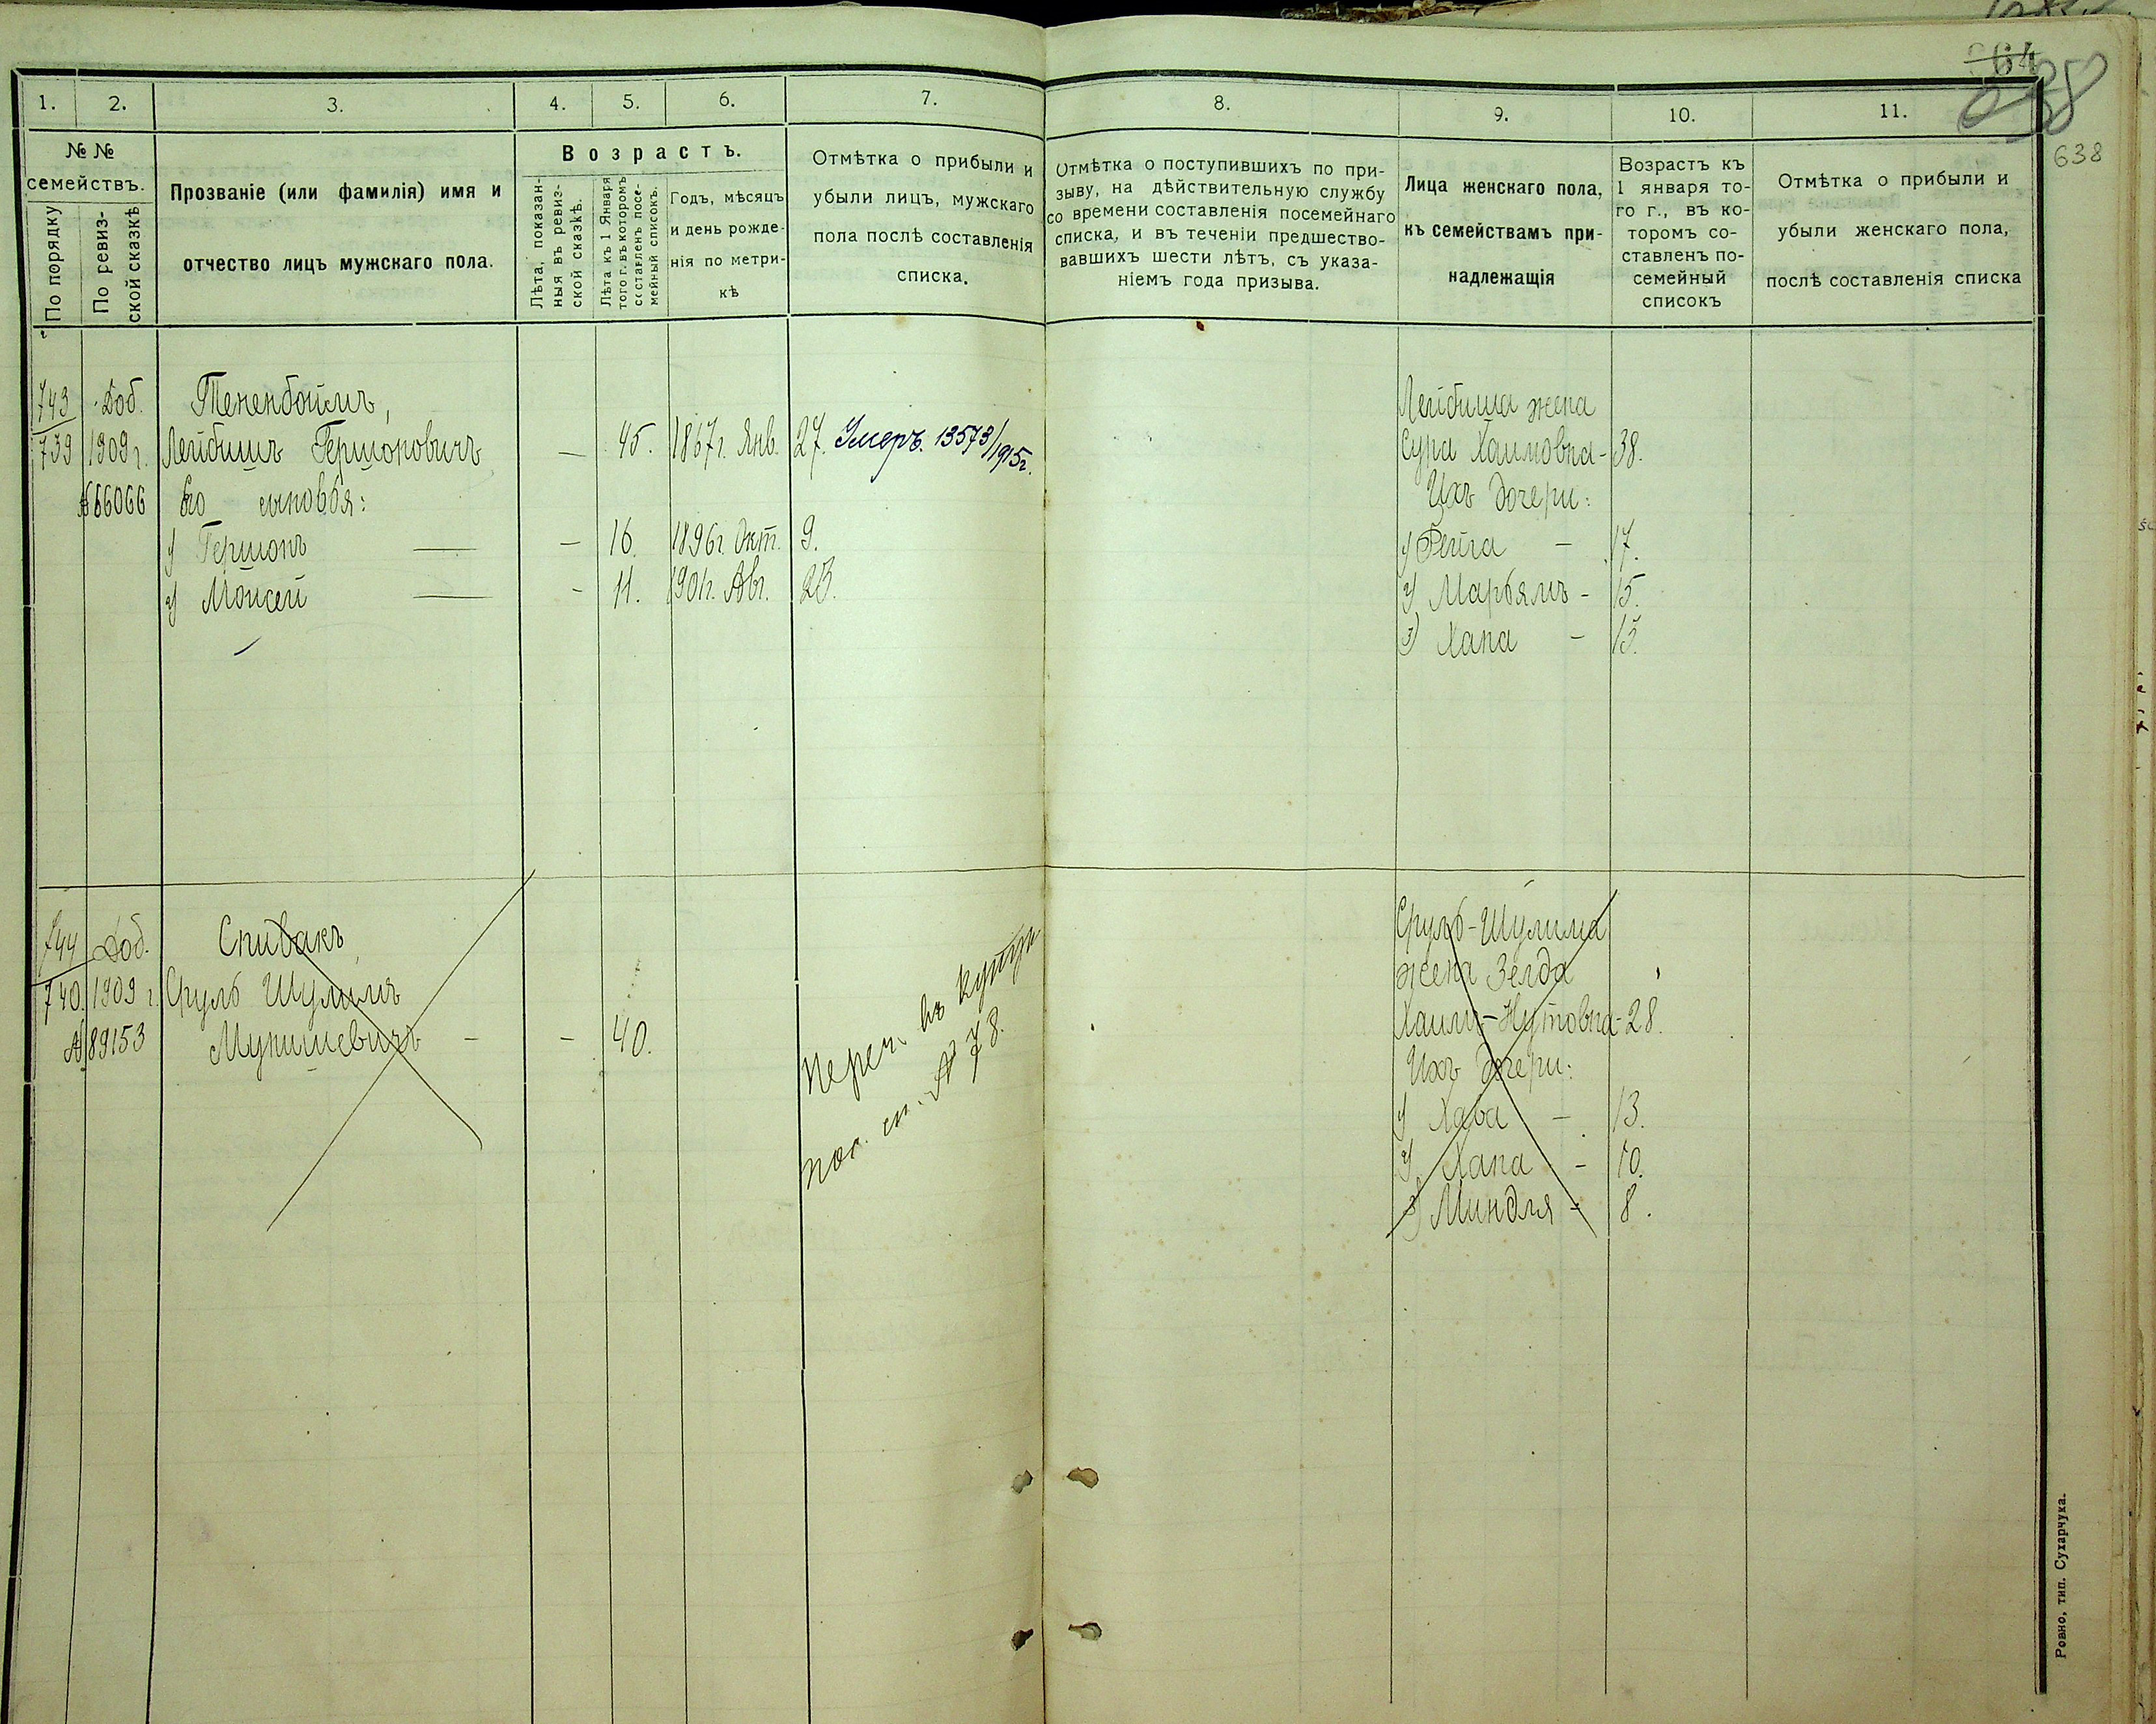 64
638
638
1. 2. 3. 4. 5. 6. 7. 8. 9. 10. 11.
№ №
семействъ.
По порядку
По ревиз-
ской сказкѣ
Прозваніе (или фамилія) имя и
отчество лицъ мужскаго пола.
Возрастъ.
Лѣта, показан-
ныя въ ревиз-
ской сказкѣ.
Лѣта къ 1 Января
того г. въ которомъ
составленъ посе-
мейный списокъ.
Годъ, мѣсяцъ
и день рожде-
нія по метри-
кѣ
Отмѣтка о прибыли и
убыли лицъ, мужскаго
пола послѣ составленія
списка.
Отмѣтка о поступившихъ по при-
зыву, на дѣйствительную службу
со времени составленія посемейнаго
списка, и въ теченіи предшество-
вавшихъ шести лѣтъ, съ указа-
ніемъ года призыва.
Лица женскаго пола,
къ семействамъ при-
надлежащія
Возрастъ къ
1 января то-
го г., въ ко-
торомъ со-
ставленъ по-
семейный
списокъ
Отмѣтка о прибыли и
убыли женскаго пола,
послѣ составленія списка
743 Доб. Тененбоймъ,
739 1909 г. Лейбишъ Гершоновичъ — 45. 1867 г. Янв. 27. Умеръ. 13573/1915г.
№66066 Его сыновья:
1) Гершонъ — — 16. 1896 г. Окт. 9.
2) Мойсей — — 11. 1901 г. Авг. 23.
Лейбиша жена
Сура Хаимовна - 38.
Ихъ дочери:
1) Фейга — 17.
2) Марьямъ - 15.
3) Хана - 13.
744 Доб. Спивакъ,
740. 1909 г. Сруль Шулимъ
№89153 Мунишевичъ - - 40.
Переч. въ купцы
пос. сп. № 78.
Сруль-Шулима
жена Зелда
Хаимъ-Нутовна - 28.
Ихъ дочери:
1) Хава - 13.
2) Хана - 10.
3) Миндля - 8.
Ровно, тип. Сухарчука.